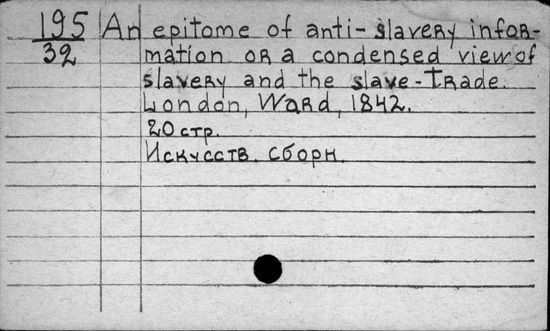 195 An epitome of anti-slavery infor-
32 mation or a condensed view of
slavery and the slave-trade.
London, Ward, 1842.
20 стр.
Искусств. сборн.